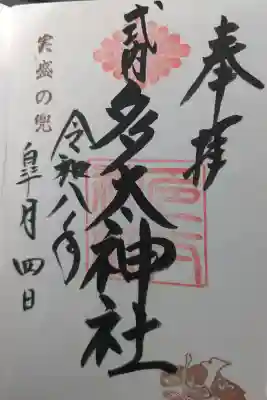 奉拝
式内
多太神社
令和八年
皐月四日
実盛の兜